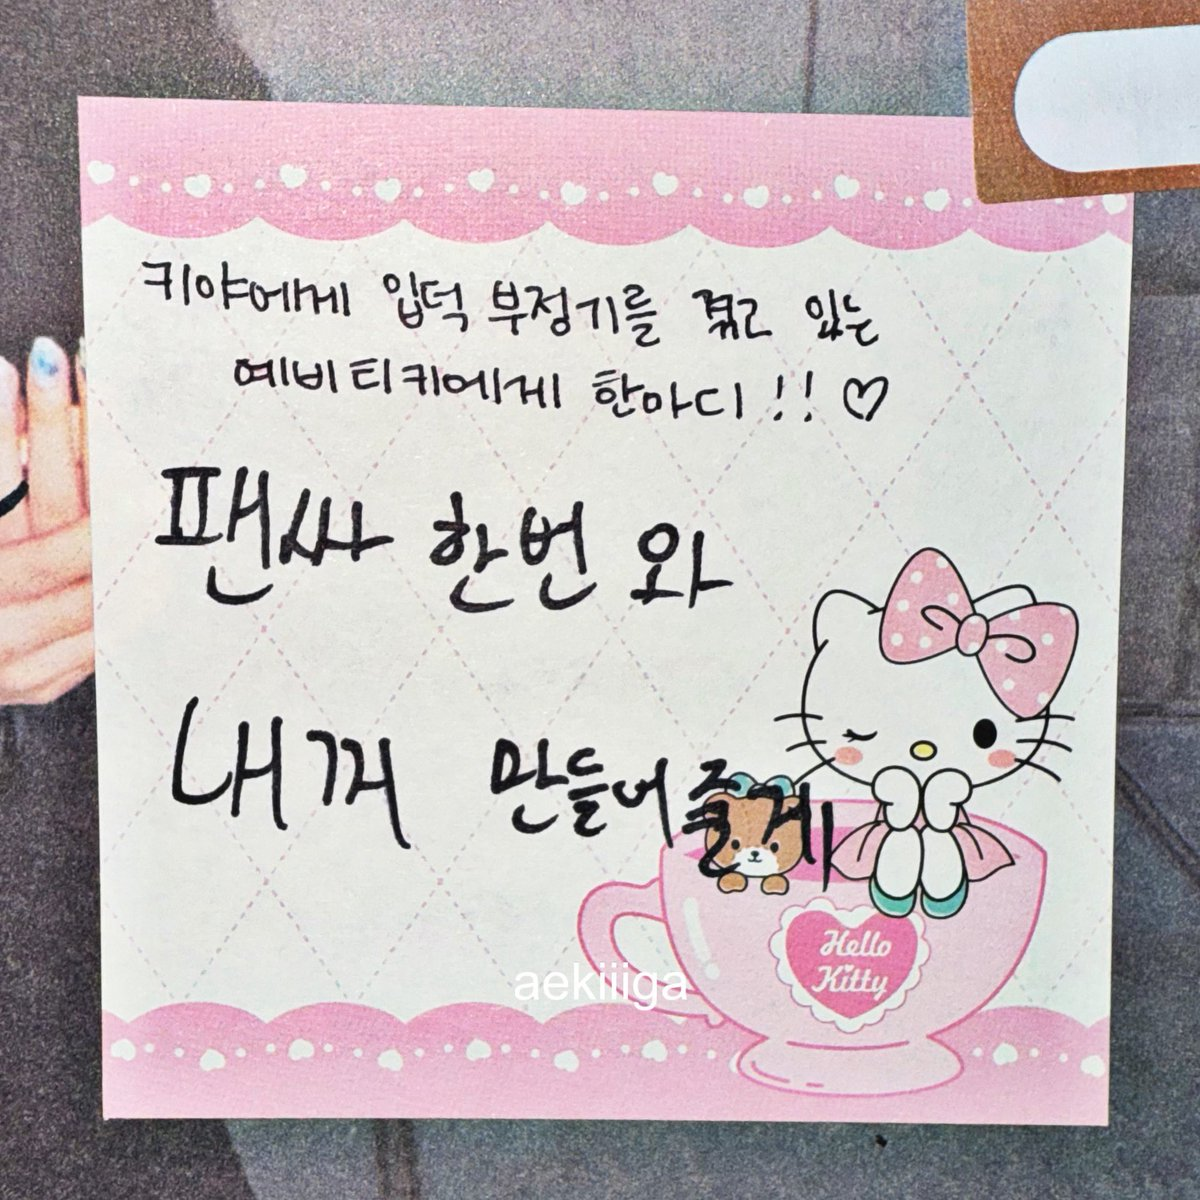 키야에게 입덕 부정기를 겪고 있는
예비 티키에게 한마디!! ♡
팬싸 한번 와
내꺼 만들어줄게
Hello
Kitty
aekiiiga